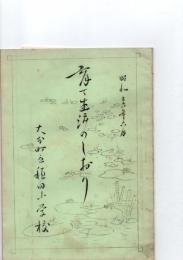 昭和二六年六月
育て生活のしおり
大分町立植田小学校